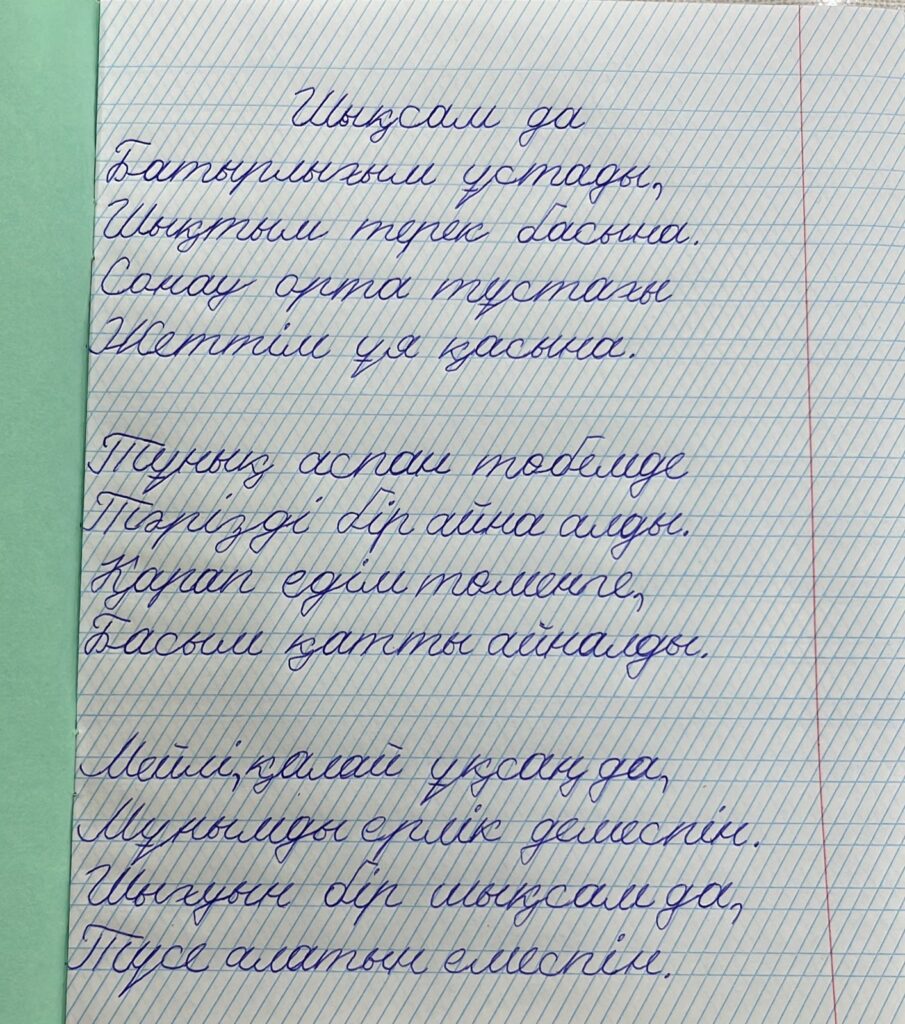 Шықсам да
Батырлығым ұстады,
Шықтым терек басына.
Сонау орта тұстағы
Жеттім ұя қасына.
Тұнық аспан төбемде
Тәрізді бір айна алды.
Қарап едім төменге,
Басым қатты айналды.
Мейлі, қалай ұқсаң да,
Мұнымды ерлік демеспін.
Шығуын бір шықсам да,
Түсе алатын емеспін.